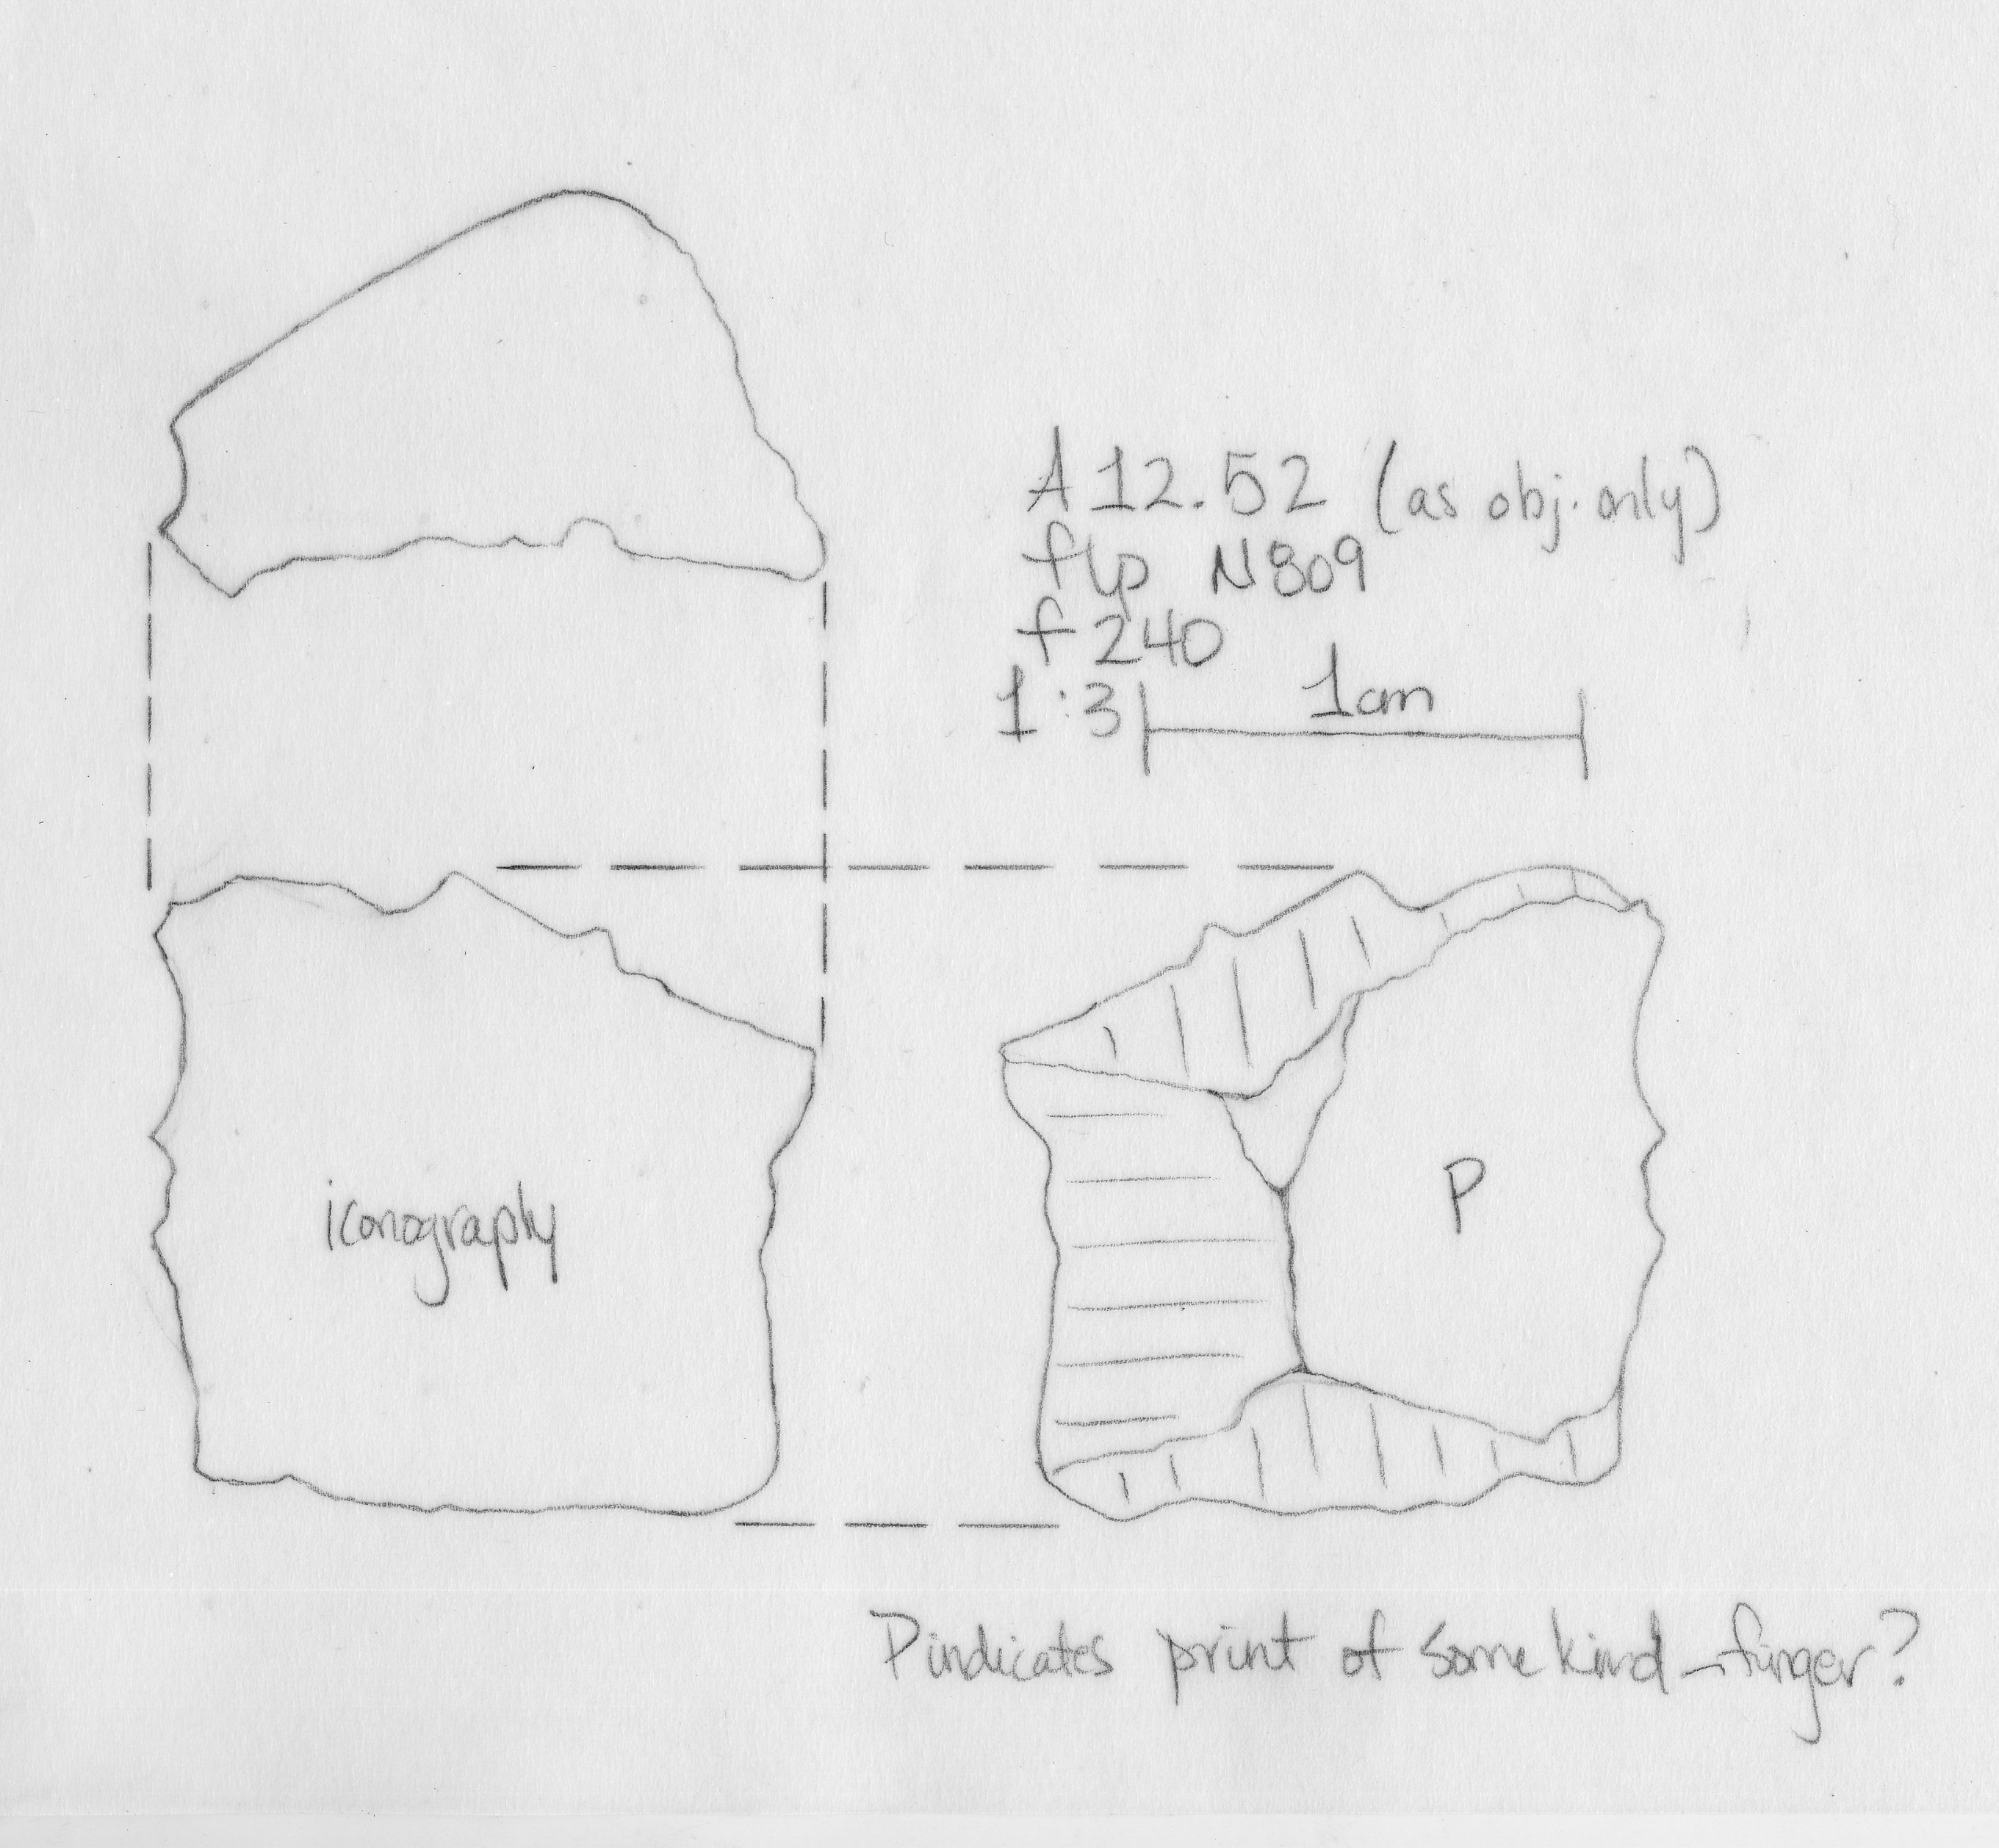 A12.52 (as obj. only)
flp N809
f240
1:3 1cm
iconography
P
P indicates print of some kind - finger?